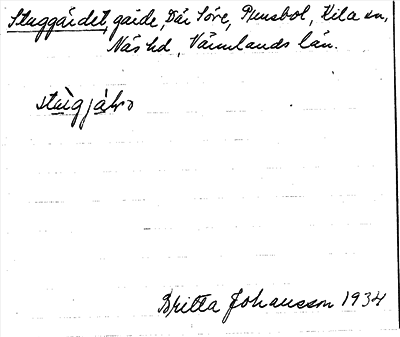 Stuggärdet, gärde, Där Söre, Prensbol, Kila sn,
Näs hd, Värmlands län.
stùgjàḷω
Britta Johansson 1934